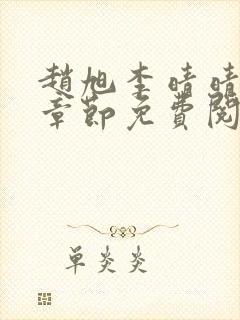 趙旭李晴晴
章節免費閱
单炎炎